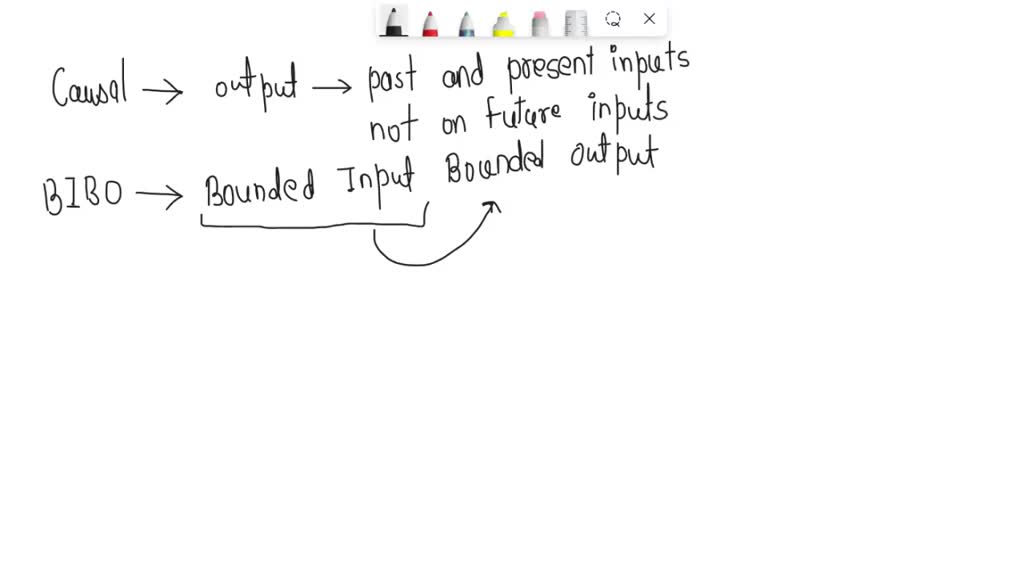 Causal → output → past and present inputs
not on future inputs
BIBO → Bounded Input Bounded output